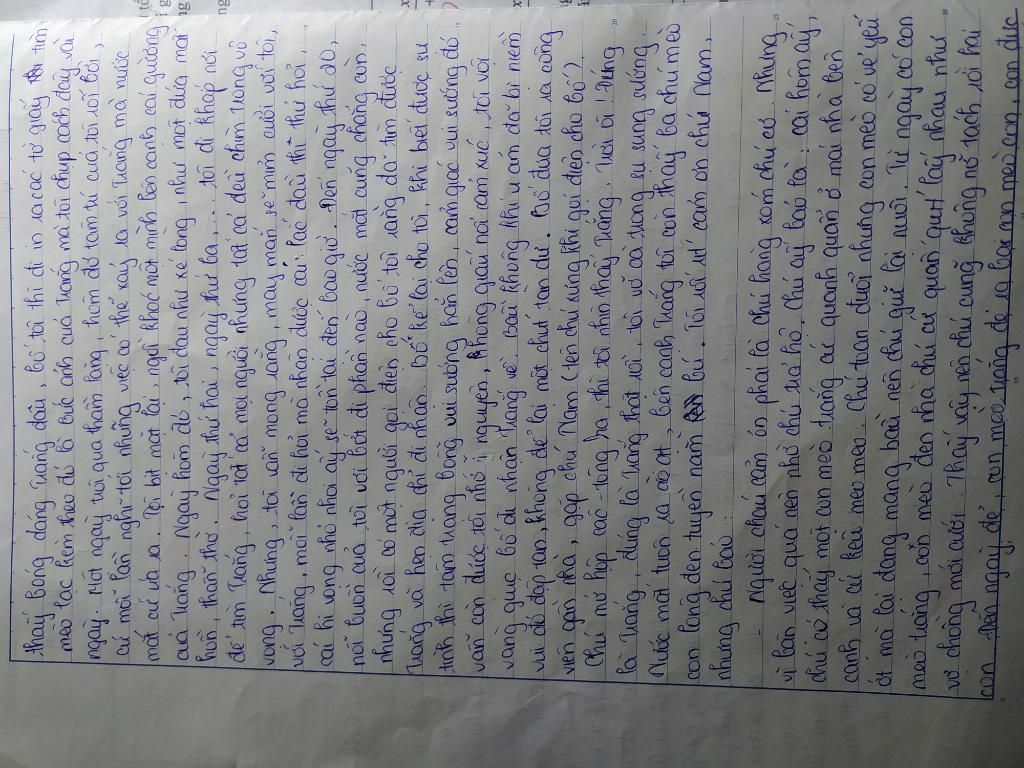 thấy bóng dáng Trắng đâu, bố tôi thì đi in ra các tờ giấy tìm
mèo lạc kèm theo đó là bức ảnh của Trắng mà tôi chụp cách đây vài
ngày. Một ngày trôi qua thầm lặng, hôm đó tâm trí của tôi rối bời,
cứ mỗi lần nghĩ tới những việc có thể xảy ra với Trắng mà nước
mắt cứ ùa ra. Tôi bịt mặt lại, ngồi khóc một mình bên cạnh cái giường
của Trắng. Ngày hôm đó, tôi đau như xé lòng, như một đứa mất
hồn, thẫn thờ. Ngày thứ hai, ngày thứ ba... tôi đi khắp nơi
để tìm Trắng, hỏi tất cả mọi người nhưng tất cả đều chìm trong vô
vọng. Nhưng, tôi vẫn mong rằng, may mắn sẽ mỉm cười với tôi,
với Trắng, mỗi lần đi hỏi mà nhận được cái lắc đầu thì thử hỏi,
cái hi vọng nhỏ nhoi ấy sẽ tồn tại đến bao giờ. Đến ngày thứ dô,
nỗi buồn của tôi vơi bớt đi phần nào, nước mắt cũng chẳng còn,
nhưng rồi có một người gọi đến cho bố tôi rằng đã tìm được
Trắng và hẹn địa chỉ đi nhận. Bố kể lại cho tôi, khi biết được sự
tình thì tâm trạng bỗng vui sướng hẳn lên, cảm giác vui sướng đó
vẫn còn được tôi nhớ y nguyên, không quản nổi cảm xúc, tôi vội
vàng giục bố đi nhận Trắng về. Bầu không khí u ám đã bị niềm
vui đó dập tan, không để lại một chút tàn dư. Bố đưa tôi ra công
viên gần nhà, gặp chú Nam (tên chú xưng khi gọi điện cho bố).
Chú mở hộp các-tông ra, thì tôi nhìn thấy Trắng. Trời ơi! Đúng
là Trắng, đúng là Trắng thật rồi, tôi vỡ oà trong sự sung sướng.
Nước mắt tuôn ra ào ạt, bên cạnh Trắng tôi còn thấy ba chú mèo
con lông đen tuyền nằm lúi. Tôi rối rít cảm ơn chú Nam,
nhưng chú bảo:
- Người cháu cảm ơn phải là chú hàng xóm chú cơ. Nhưng
vì bận việc quá nên nhờ chú trả hộ. Chú ấy bảo là: cái hôm ấy,
chú có thấy một con mèo trắng cứ quanh quẩn ở mái nhà bên
cạnh và cứ kêu meo meo. Chú toan đuổi nhưng con mèo có vẻ yếu
ớt mà lại đang mang bầu nên chú giữ lại nuôi. Từ ngày có con
mèo trắng, con mèo đen nhà chú cứ quấn quýt lấy nhau như
vợ chồng mới cưới. Thấy vậy nên chú cũng không nỡ tách rời hai
con. Đến ngày đẻ, con mèo trắng đẻ ra ba con mèo con, con đực